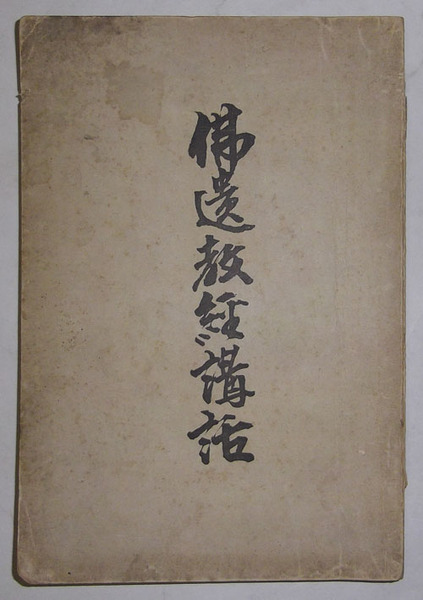 佛遺教經講話